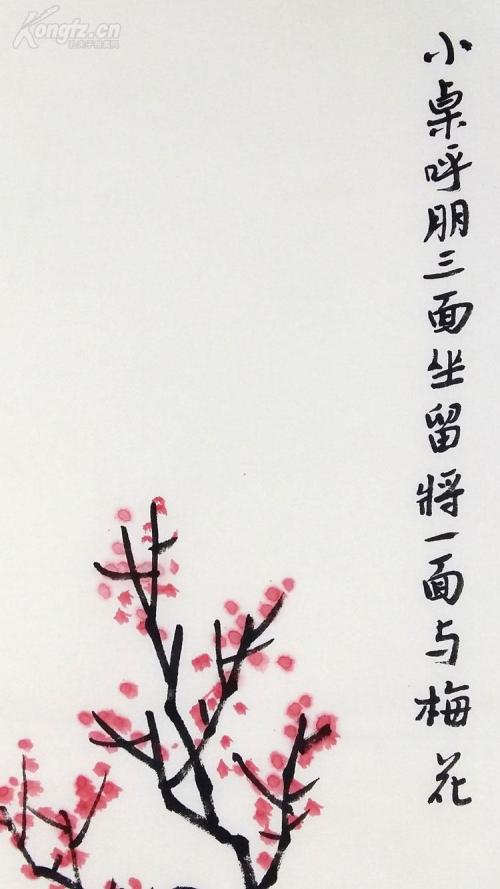 Kongfz.cn
孔夫子旧书网
小桌呼朋三面坐留將一面与梅花